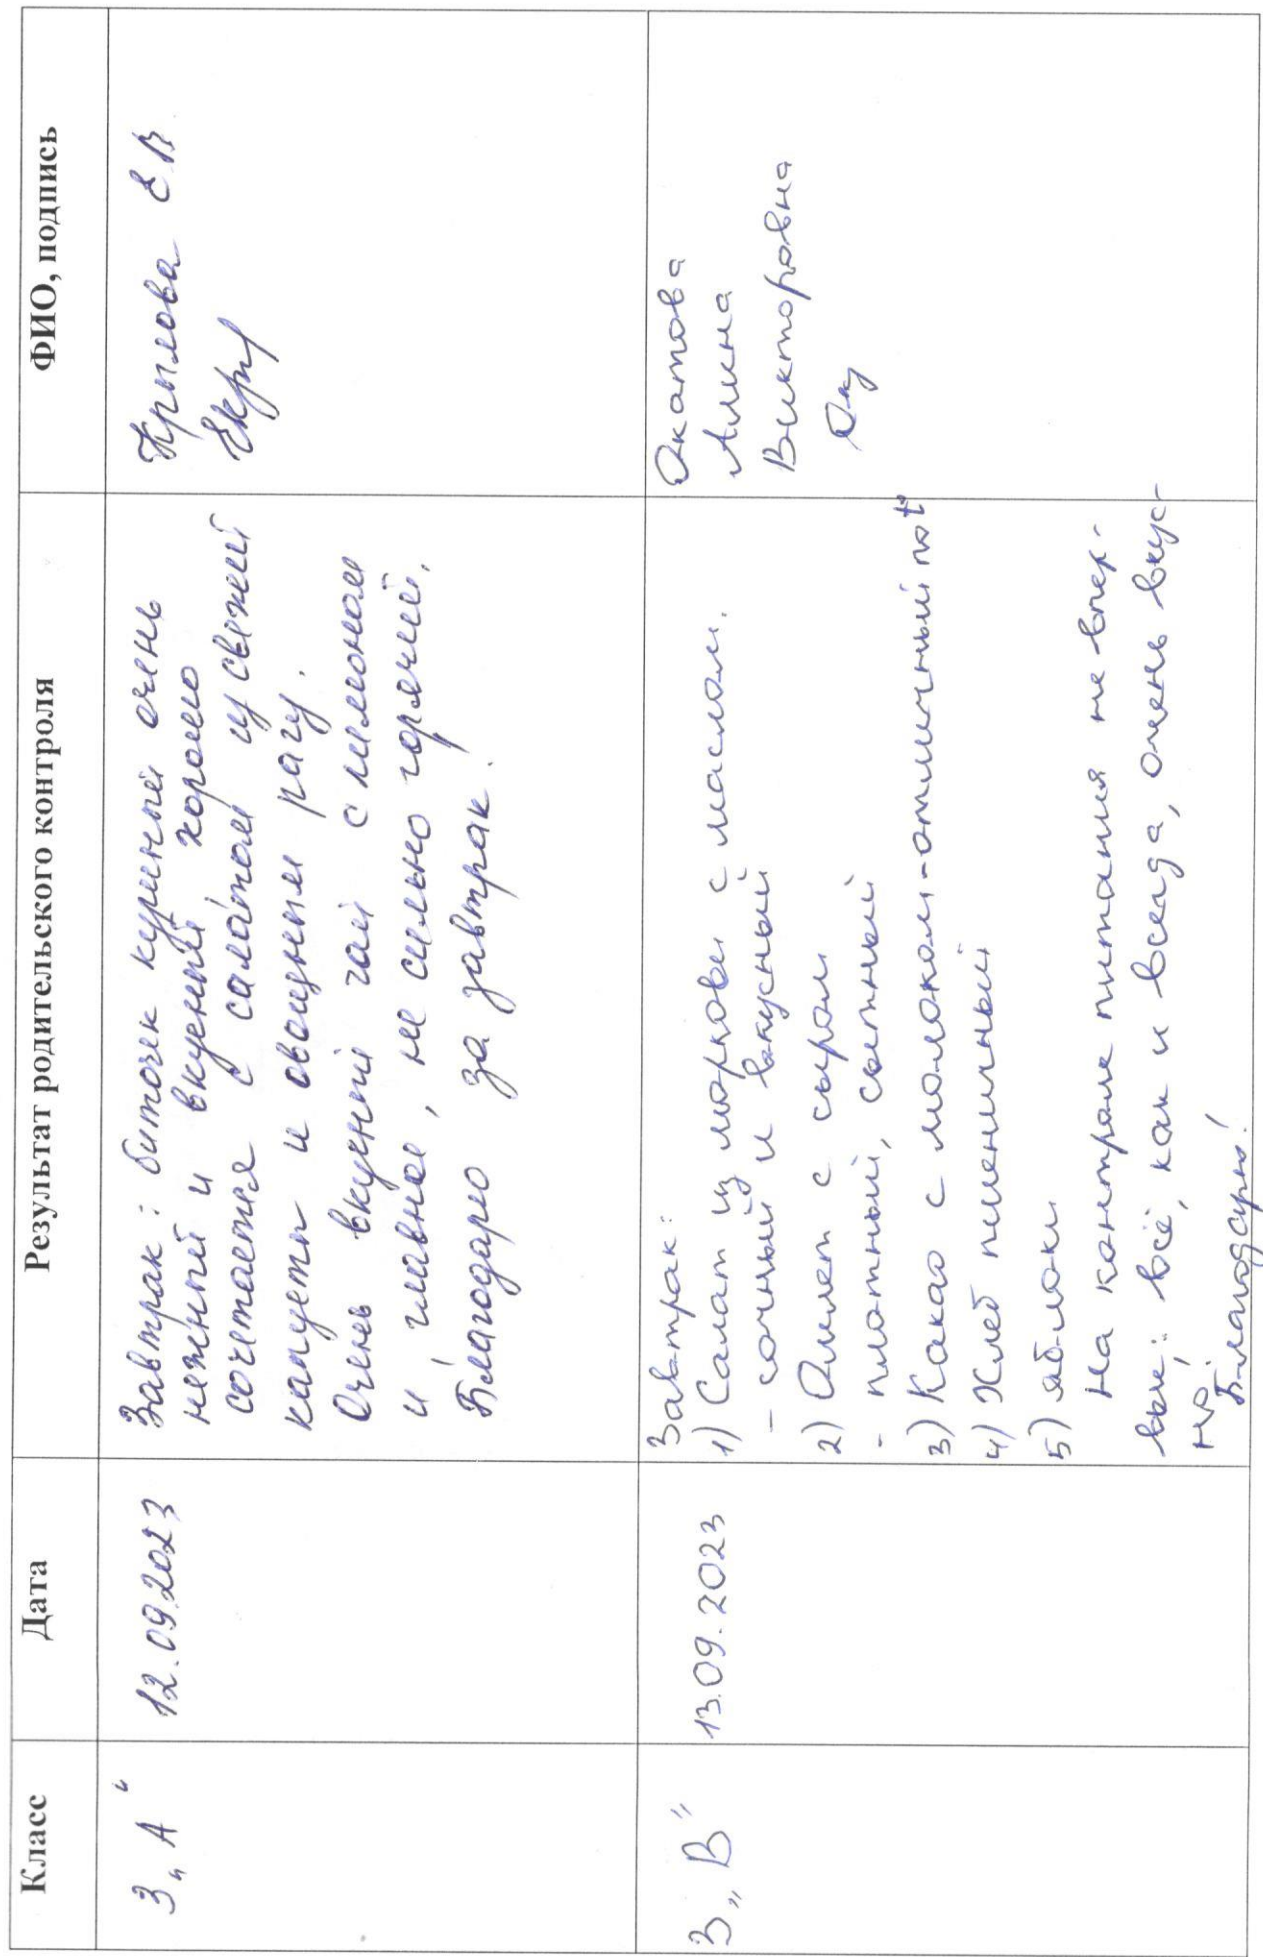 Класс Дата Результат родительского контроля ФИО, подпись
3 „А“ 12.09.2023
Завтрак: биточек куриный очень
нежный и вкусный, хорошо
сочетается с салатом из свежей
капусты и овощным рагу.
Очень вкусный чай с лимоном
и, главное, не сильно горячий.
Благодарю за завтрак!
Крылова Е.В
3 „В” 13.09.2023
Завтрак:
1) Салат из моркови с маслом.
- сочный и вкусный
2) Омлет с сыром
- плотный, сытный
3) Какао с молоком-отличный по t°
4) Хлеб пшеничный
5) яблоки
На контроле питания не впер-
вые: всё, как и всегда, очень вкус-
но.
Благодарю!
Окатова
Алина
Викторовна